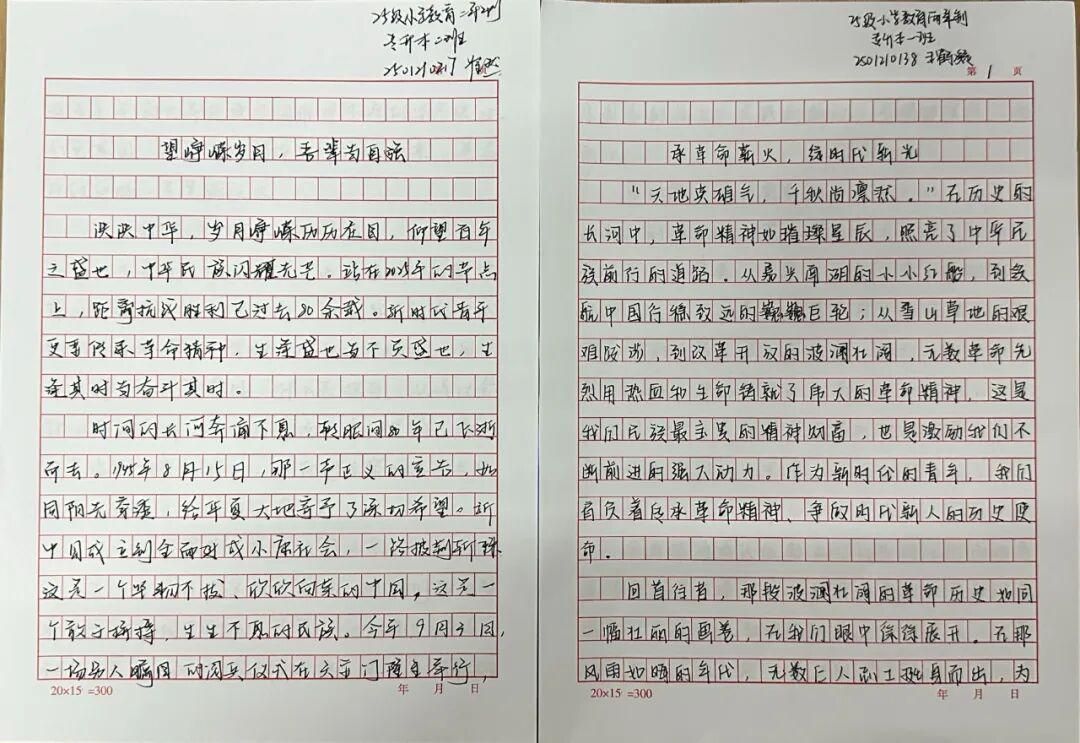 25级小学教育二年制
专升本二班
2501210217
望峥嵘岁月，吾辈当自强
泱泱中华，岁月峥嵘历历在目，仰望百年
之盛世，中华民族闪耀光芒。站在2025年的节点
上，距离抗战胜利已过去80余载。新时代青年
更要传承革命精神，生逢盛世当不负盛世，生
逢其时当奋斗其时。
时间的长河奔涌不息，转眼间80年已飞逝
而去。1945年8月15日，那一声正义的宣告，如
同阳光穿透，给华夏大地寄予了深切希望。新
中国成立到全面对成小康社会，一路披荆斩棘
这是一个坚韧不拔、欣欣向荣的中国，这是一
个敢于拼搏，生生不息的民族。今年9月3日，
一场另人瞩目的阅兵仪式在天安门隆重举行，
20×15 =300 年 月 日
25级小学教育两年制
专升本一班
2501210138
第 1 页
承革命薪火，绽时代新光
“天地英雄气，千秋尚凛然。”在历史的
长河中，革命精神如璀璨星辰，照亮了中华民
族前行的道路。从嘉兴南湖的小小红船，到领
航中国行稳致远的巍巍巨轮；从雪山草地的艰
难跋涉，到改革开放的波澜壮阔，无数革命先
烈用热血和生命铸就了伟大的革命精神，这是
我们民族最宝贵的精神财富，也是激励我们不
断前进的强大动力。作为新时代的青年，我们
肩负着传承革命精神、争做时代新人的历史使
命。
回首往昔，那段波澜壮阔的革命历史如同
一幅壮丽的画卷，在我们眼中徐徐展开。在那
风雨如晦的年代，无数仁人志士挺身而出，为
20×15 =300 年 月 日